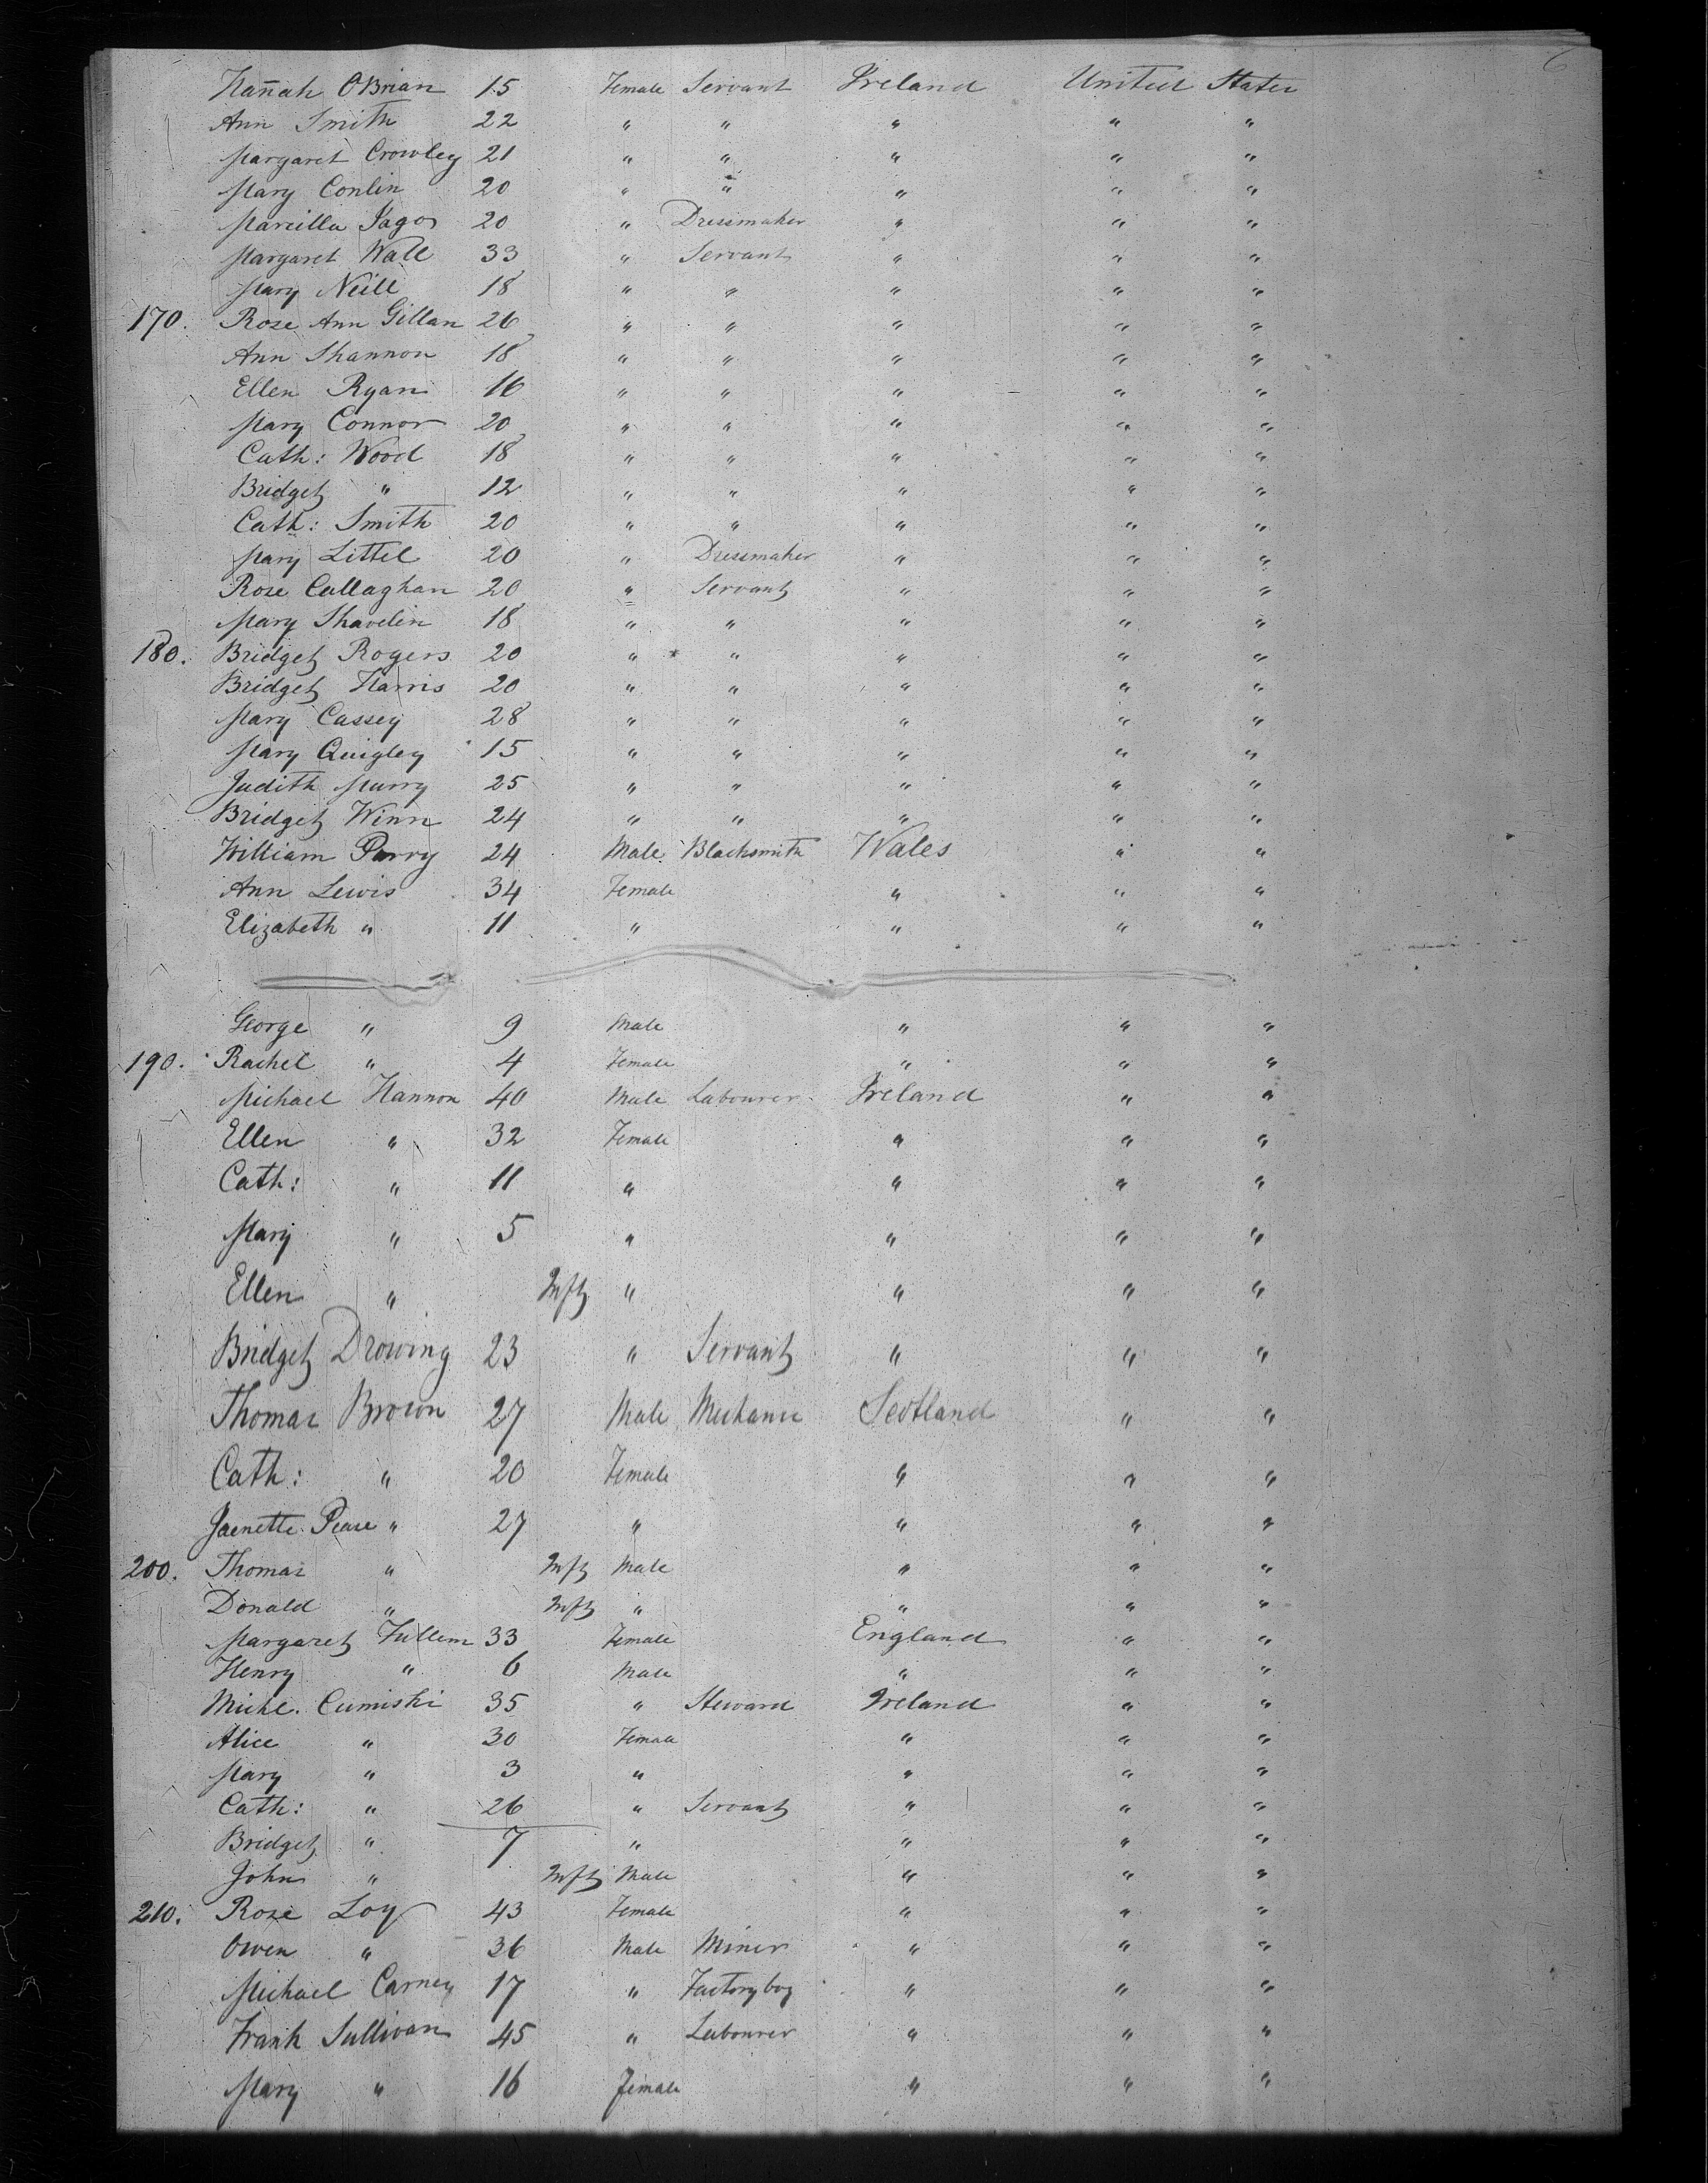 6
Hannah OBrian 15 Female Servant Ireland United States
Ann Smith 22 " " " " "
Margaret Crowley 21 " " " " "
Mary Conlin 20 " " " " "
Marcilla Jago 20 " Dressmaker " " "
Margaret Wall 33 " Servant " " "
Mary Neill 18 " " " " "
170. Rose Ann Gillan 26 " " " " "
Ann Shannon 18 " " " " "
Ellen Ryan 16 " " " " "
Mary Connor 20 " " " " "
Cath: Wood 18 " " " " "
Bridget " 12 " " " " "
Cath: Smith 20 " " " " "
Mary Littel 20 " Dressmaker " " "
Rose Callaghan 20 " Servant " " "
Mary Shavelin 18 " " " " "
180. Bridget Rogers 20 " " " " "
Bridget Harris 20 " " " " "
Mary Cassey 28 " " " " "
Mary Quigley 15 " " " " "
Judith Murry 25 " " " " "
Bridget Winn 24 " " " " "
William Parry 24 Male Blacksmith Wales " "
Ann Lewis 34 Female " " "
Elizabeth " 11 " " " "
George " 9 Male " " "
190. Rachel " 4 Female " " "
Michael Hannon 40 Male Labourer Ireland " "
Ellen " 32 Female " " "
Cath: " 11 " " " "
Mary " 5 " " " "
Ellen " Inft " " " "
Bridget Drowing 23 " Servant " " "
Thomas Brown 27 Male Mechanic Scotland " "
Cath: " 20 Female " " "
Jaenette Pease " 27 " " " "
200. Thomas " Inft Male " " "
Donald " Inft " " " "
Margaret Fullem 33 Female England " "
Henry " 6 Male " " "
Michl. Cumiski 35 " Steward Ireland " "
Alice " 30 Female " " "
Mary " 3 " " " "
Cath: " 26 " Servant " " "
Bridget " 7 " " " "
John " Inft Male " " "
210. Rose Loy 43 Female " " "
Owen " 36 Male Miner " " "
Michael Carney 17 " Factoryboy " " "
Frank Sullivan 45 " Labourer " " "
Mary " 16 Female " " "